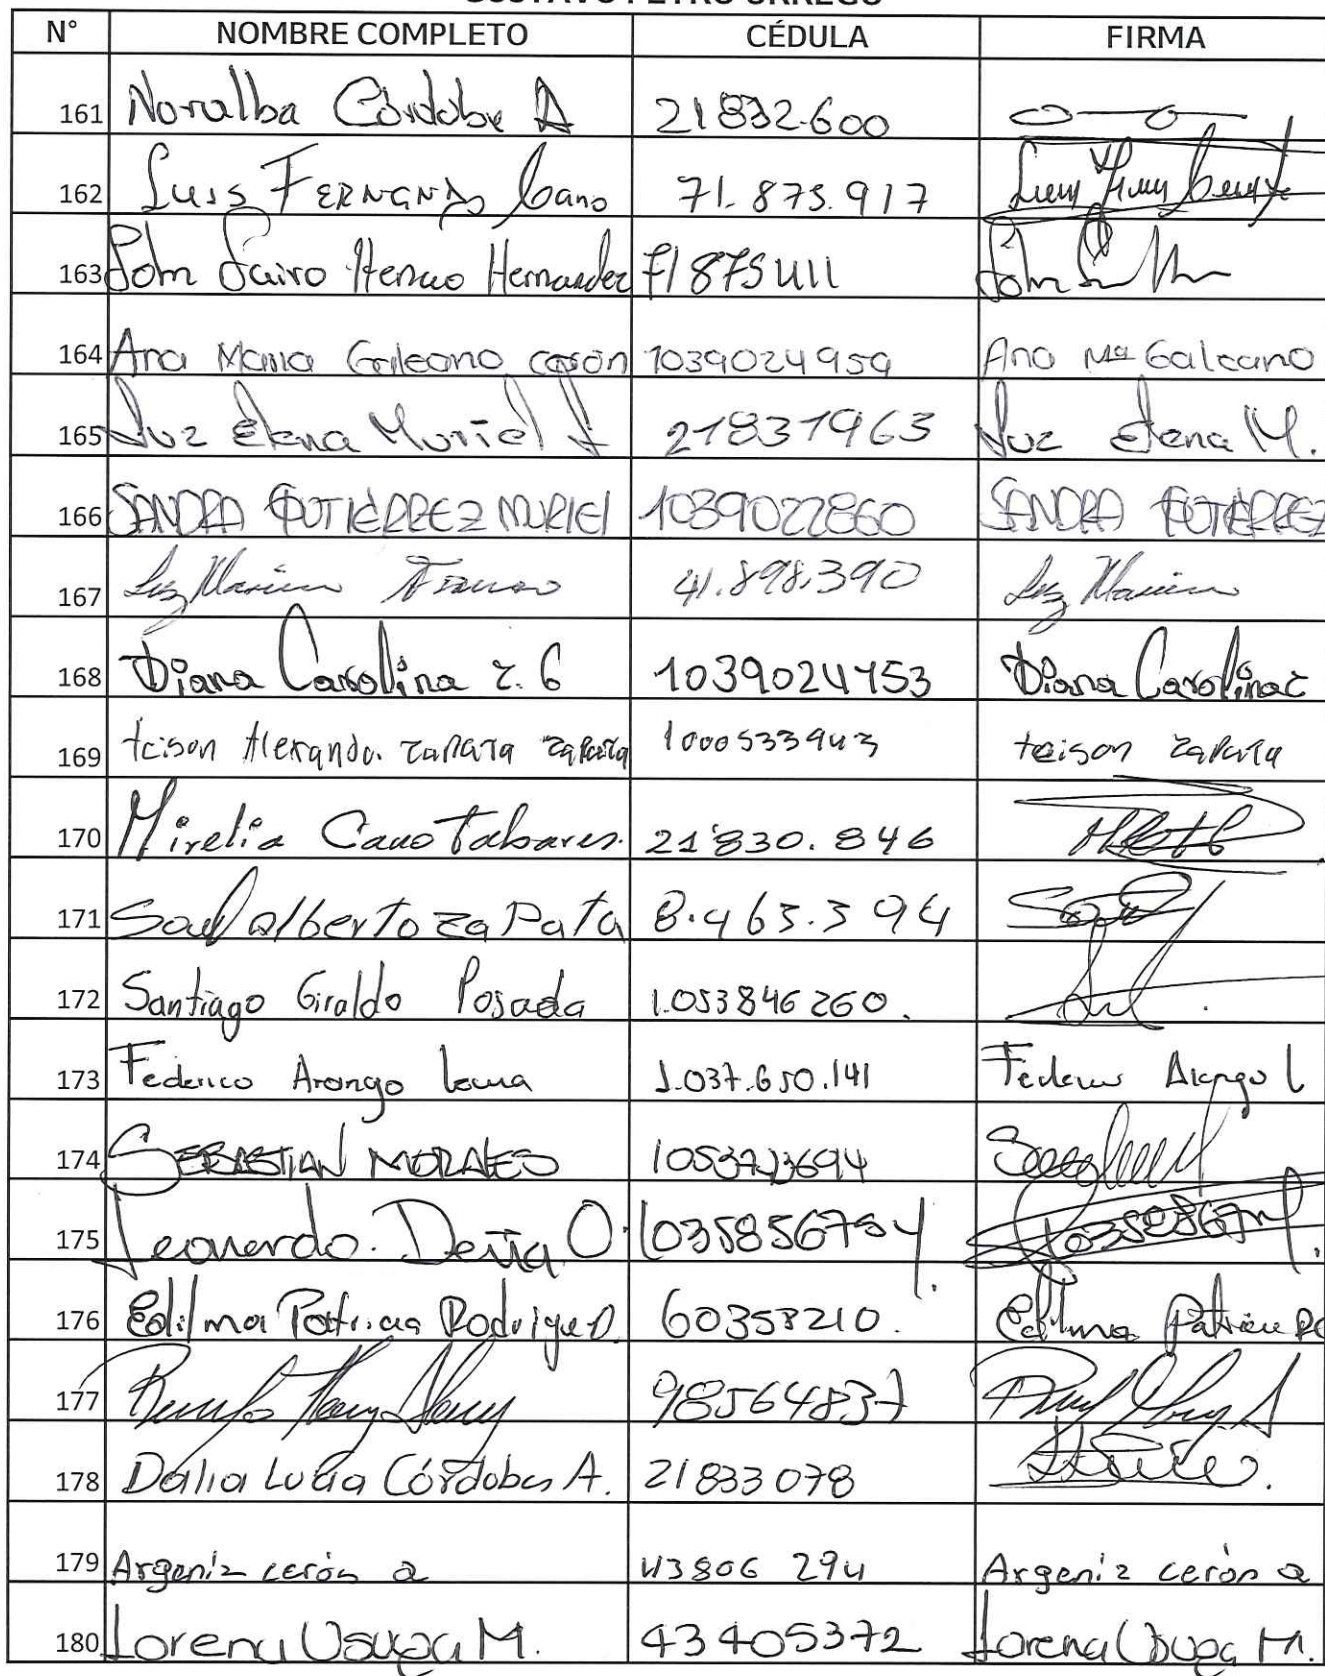 GUSTAVO PETRO URREGO
N° NOMBRE COMPLETO CÉDULA FIRMA
161 Noralba Córdoba A 21832.600
162 Luis FERNANDO Cano 71.875.917
163 John Jairo Henao Hernandez 71875411 John
164 Ana Maria Galeano 1039024959 Ana Mª Galeano
165 Luz Elena Muriel 21831963 Luz Elena M.
166 SANDRA GUTIÉRREZ MURIEL 1039022860 SANDRA GUTIÉRREZ
167 Luz Marina 41.898.390 Luz Marina
168 Diana Carolina Z. G 1039024753 Diana Carolina
169 Alexander zapata zapata 1000533943 zapata
170 Mirelia Cano Tabares. 21'830.846
171 Saul alberto zapata 8.463.394 Saul
172 Santiago Giraldo Posada 1.053846260.
173 Federico Arango 1.037.650.141 Federico Arango L
174 SEBASTIAN MORALES
175 Leonardo. O.
176 Edilma Patricia 60358210. Edilma Patricia
177 98564837
178 Dalia Lucia Córdoba A. 21833078
179 Argeniz cerón a 43806 294 Argeniz cerón a
180 Lorena Usuga M. 43405372 Lorena Usuga M.